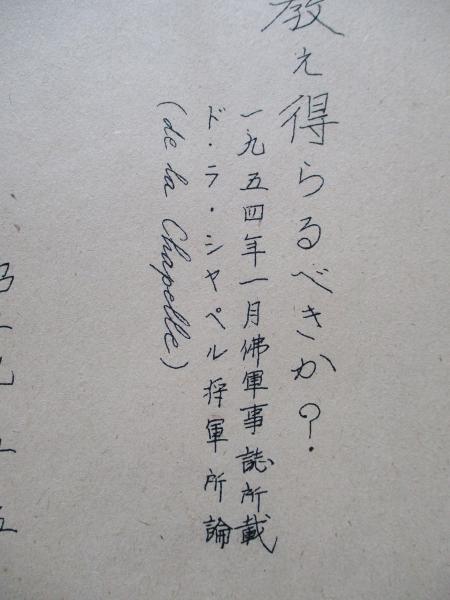 教え得らるべきか?
一九五四年一月佛軍事誌所載
ド・ラ・シャペル将軍所論
(de la Chapelle)